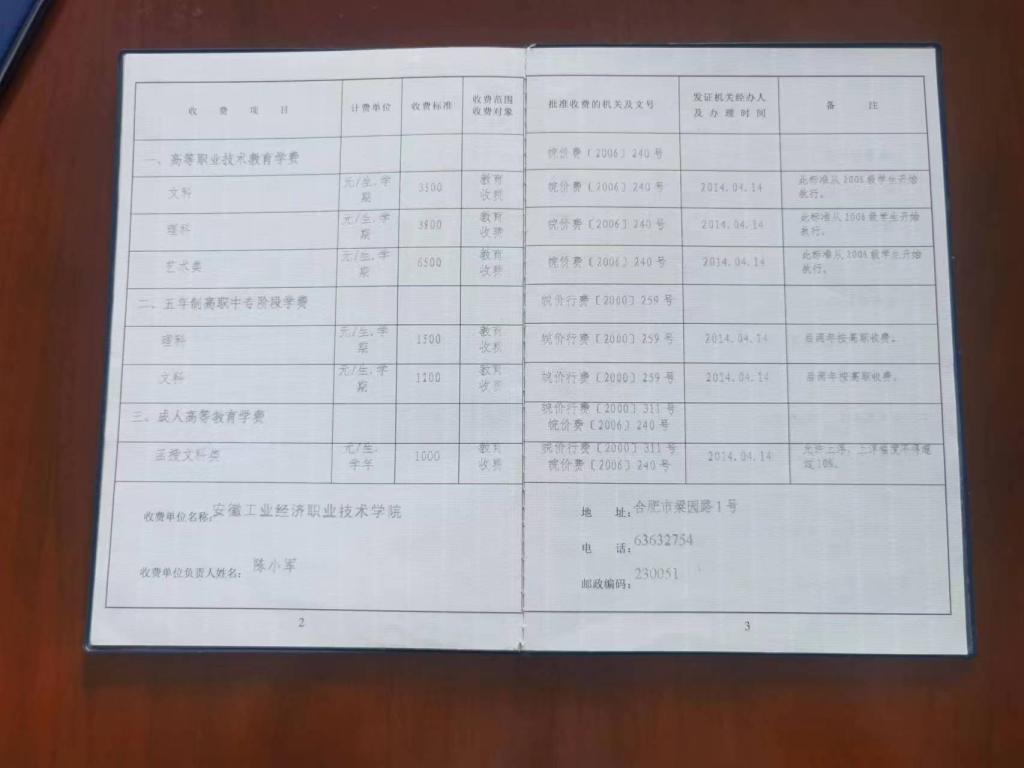 收费项目 计费单位 收费标准 收费范围 收费对象 批准收费的机关及文号 发证机关经办人及办理时间 备注
一、高等职业技术教育学费 皖价费〔2006〕240号
文科 元/生.学期 3500 教育收费 皖价费〔2006〕240号 2014.04.14 此标准从2006级学生开始执行。
理科 元/生.学期 3900 教育收费 皖价费〔2006〕240号 2014.04.14 此标准从2006级学生开始执行。
艺术类 元/生.学期 6500 教育收费 皖价费〔2006〕240号 2014.04.14 此标准从2006级学生开始执行。
二、五年制高职中专阶段学费 皖价行费〔2000〕259号
理科 元/生.学期 1500 教育收费 皖价行费〔2000〕259号 2014.04.14 后两年按高职收费。
文科 元/生.学期 1200 教育收费 皖价行费〔2000〕259号 2014.04.14 后两年按高职收费。
三、成人高等教育学费 皖价行费〔2000〕311号 皖价费〔2006〕240号
函授文科类 元/生.学年 1000 教育收费 皖价行费〔2000〕311号 皖价费〔2006〕240号 2014.04.14 允许上浮，上浮幅度不得超过10%。
收费单位名称：安徽工业经济职业技术学院
收费单位负责人姓名：陈小军
2
地址：合肥市梁园路1号
电话：63632754
邮政编码：230051
3